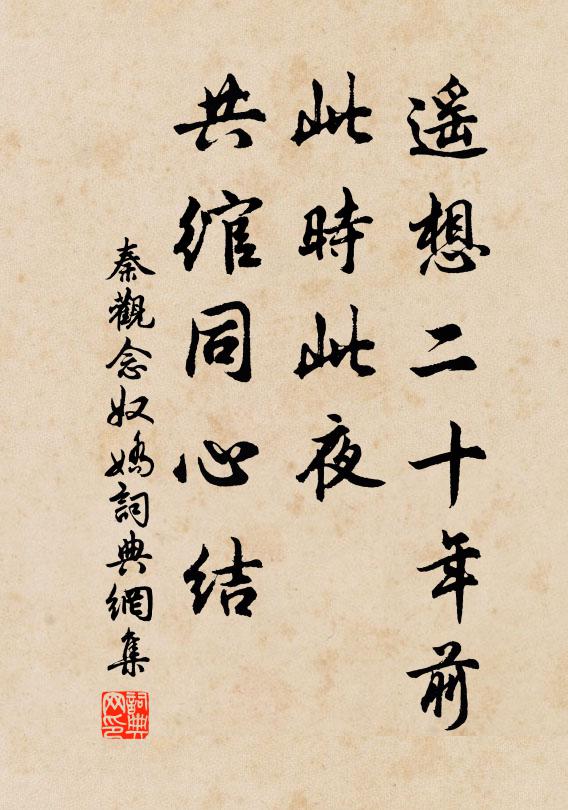 遥想二十年前
此時此夜
共綰同心結
秦觀念奴嬌詞典網集
詞典网印